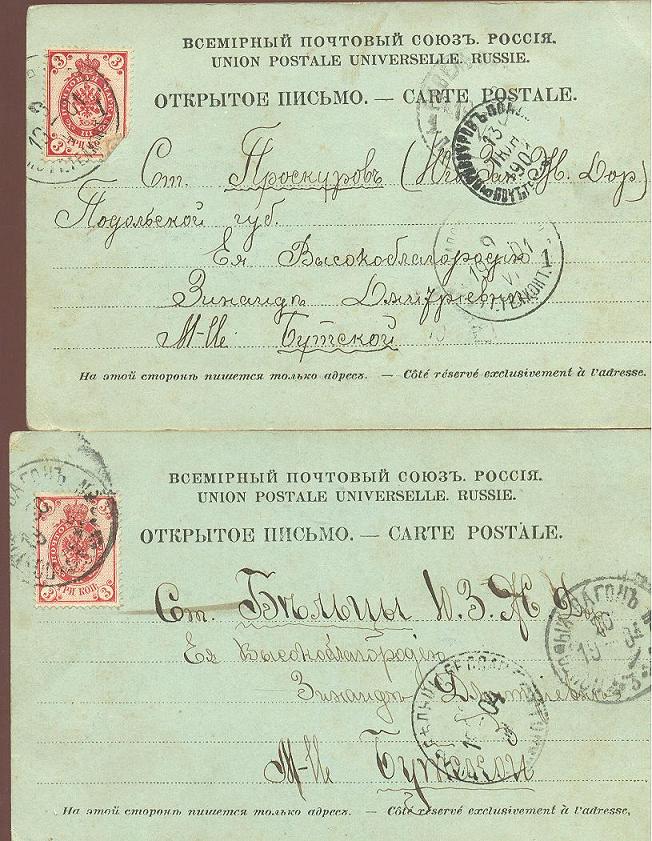 ВСЕМІРНЫЙ ПОЧТОВЫЙ СОЮЗЪ. РОССІЯ.
UNION POSTALE UNIVERSELLE. RUSSIE.
ОТКРЫТОЕ ПИСЬМО. — CARTE POSTALE.
Ст. Проскуровъ (Юго Зап. Ж. Дор)
Подольской губ.
Ея Высокоблагородію
Зинаидѣ Дмитріевнѣ
M-lle Бутской
На этой сторонѣ пишется только адресъ. — Côté réservé exclusivement à l'adresse.
ВСЕМІРНЫЙ ПОЧТОВЫЙ СОЮЗЪ. РОССІЯ.
UNION POSTALE UNIVERSELLE. RUSSIE.
ОТКРЫТОЕ ПИСЬМО. — CARTE POSTALE.
3 3
3 ТРИ КОП 3
Ст. Бѣльцы Ю.З.Ж.Д.
Ея Высокоблагородію
Зинаидѣ Дмитріевнѣ
M-lle Бутской
На этой сторонѣ пишется только адресъ. — Côté réservé exclusivement à l'adresse,